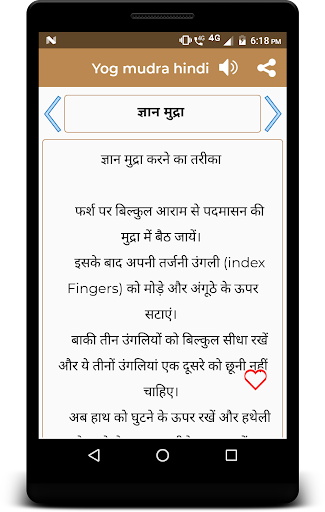 4G 4G 6:18 PM
Yog mudra hindi
ज्ञान मुद्रा
ज्ञान मुद्रा करने का तरीका
फर्श पर बिल्कुल आराम से पदमासन की
मुद्रा में बैठ जायें।
इसके बाद अपनी तर्जनी उंगली (index
Fingers) को मोड़े और अंगूठे के ऊपर
सटाएं।
बाकी तीन उंगलियों को बिल्कुल सीधा रखें
और ये तीनों उंगलियां एक दूसरे को छूनी नहीं
चाहिए।
अब हाथ को घुटने के ऊपर रखें और हथेली